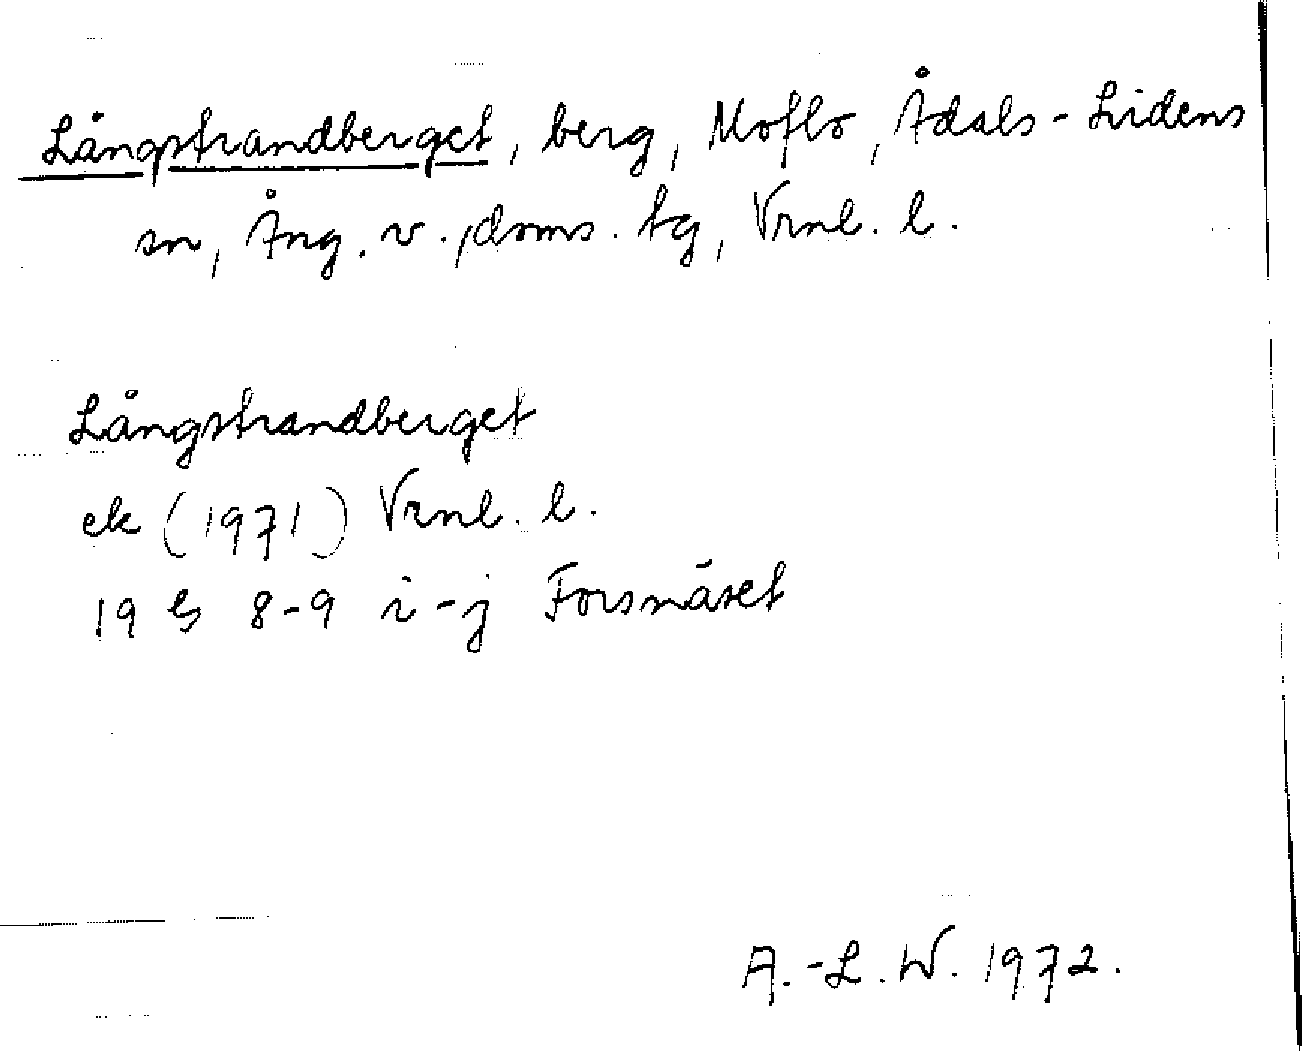 Långstrandberget, berg, Moflo, Ådals-Lidens
sn, Ång. v., doms. tg, Vrnl. l.
Långstrandberget
ek (1971) Vrnl. l.
19 G 8-9 i-j Forsnäset
A.-L. W. 1972.